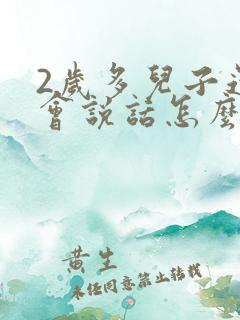 2歲多兒子
會說話怎麼
黃生
未经同意禁止转载